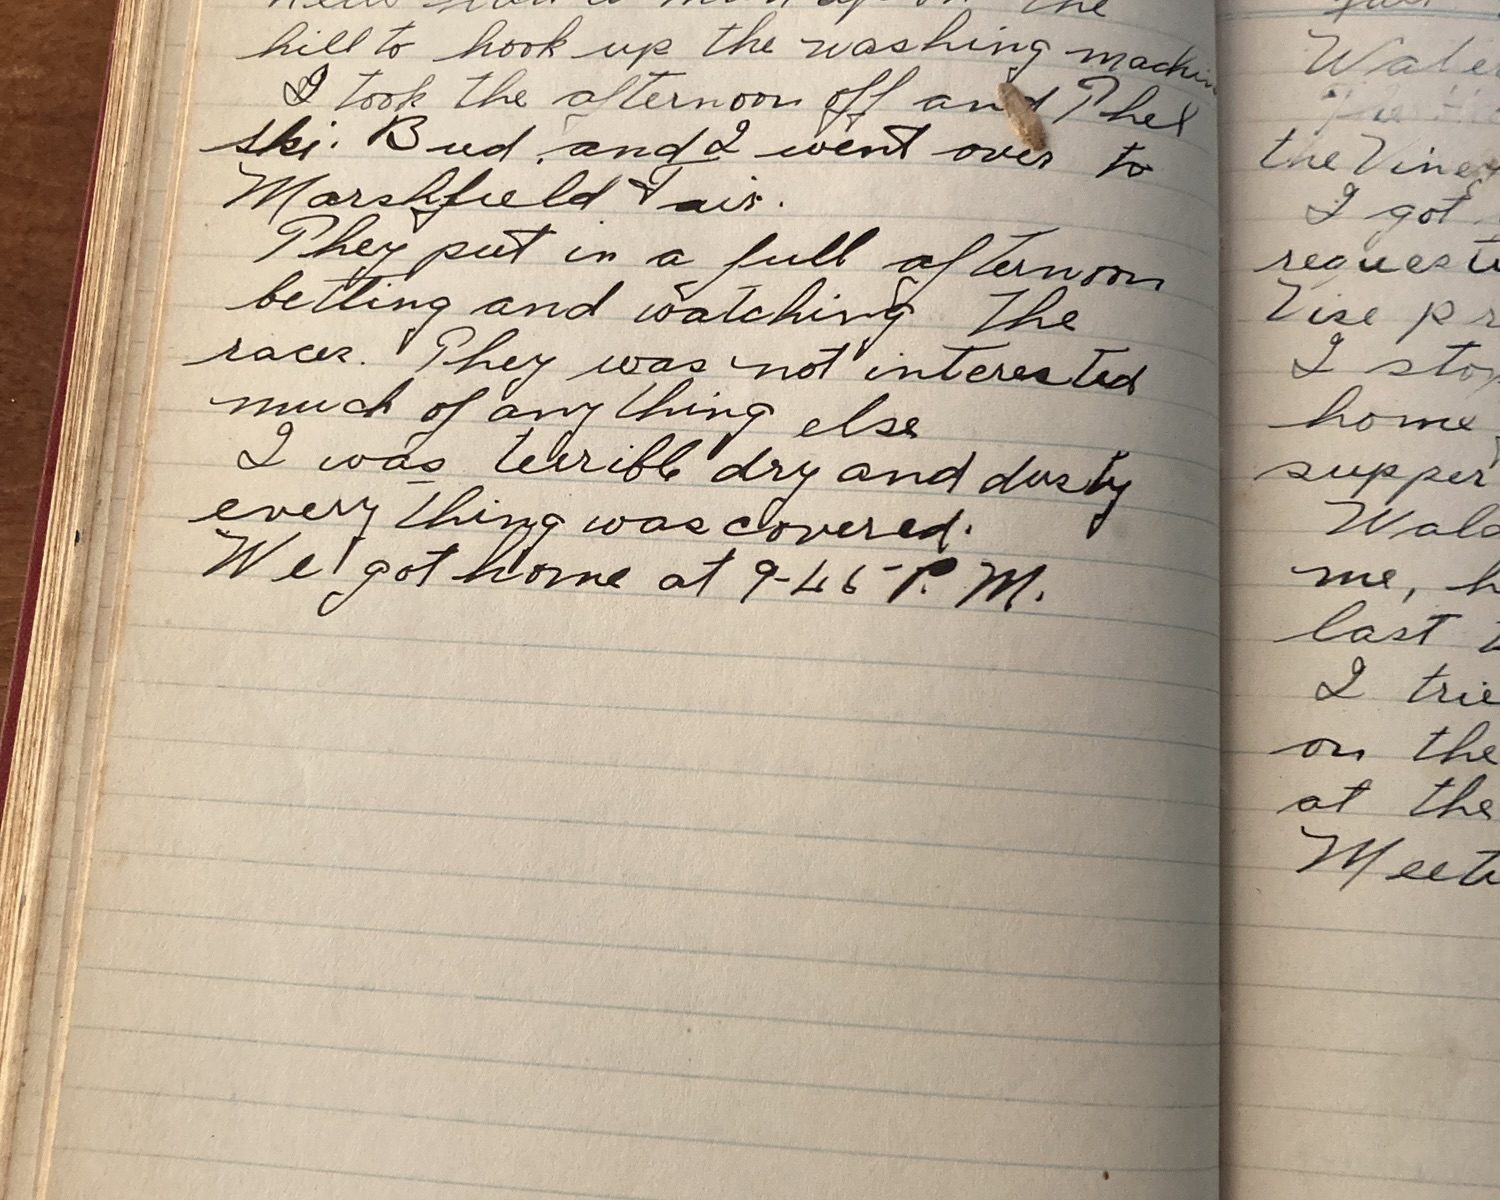 hill to hook up the washing machin
I took the afternoon off and Phel
ski. Bud. and I went over to
Marshfield Fair.
They put in a full afternoon
betting and watching the
races. They was not interested
much of any thing else
I was terrible dry and dusty
every thing was covered.
We got home at 9-45 P.M.
Water
the Viney
I got
request
Vise pr
I stop
home
supper
Wald
me, h
last t
I trie
on the
at the
Meeti